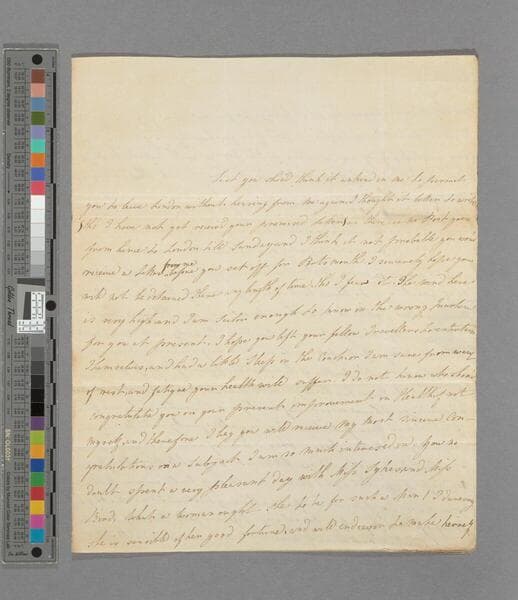 Lest you shou'd think it unkind in me to permit
you to leave London without hearing from me again I thought it better to write
(tho' I have not yet received your promised letter) as there is no Post goes
from hence to London till Sunday and I think it not probable you wou'd
receive a letter from me before you set off for Portsmouth I sincerely hope you
will not be detained there any length of time tho' I fear it. The wind here
is very high and I am Sailor enough to know in the wrong Quarter
for you at present. I hope you left your fellow Travellers to entertain
themselves, and had a little Sleep in the Coach or I am sure from want
of rest, and fatigue your health will suffer. I do not know who I shou'd
congratulate you on your present improvement in Health if not
myself, and therefore I beg you will receive my most sincere Con-
gratulations on a Subject I am so much interested in. You no
doubt spent a very pleasant day with Miss Sykes and Miss
Bird. What a woman ought she to be for such a Man! I dare say
she is sensible of her good fortune, and will endeavor to make herself